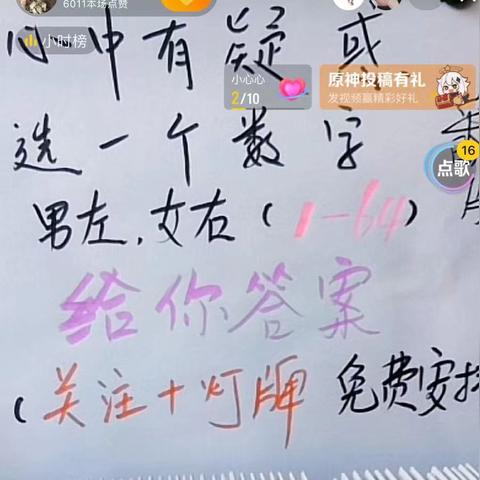 6011本场点赞
小时榜
心中有疑或
小心心
2/10
原神投稿有礼
发视频赢精彩好礼
选一个数字
16
点歌
男左,女右(1-64)
给你答案
(关注+灯牌 免费安排